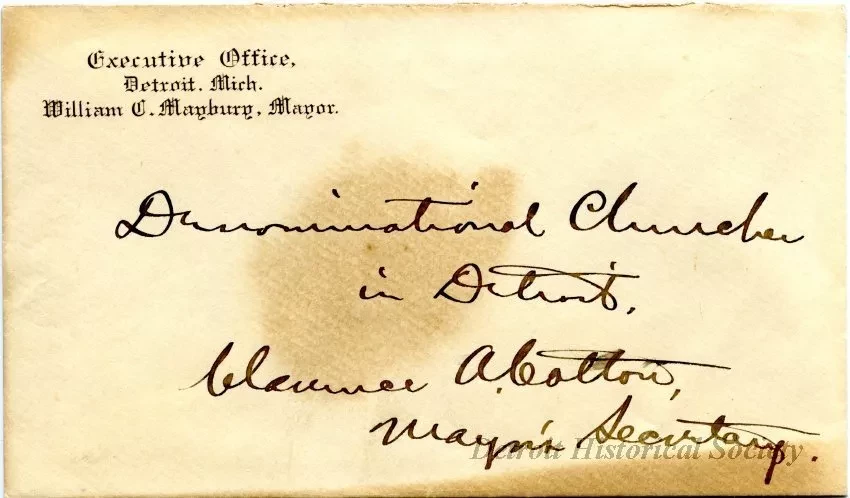 Executive Office,
Detroit. Mich.
William C. Maybury, Mayor.
Denominational Churches
in Detroit,
Clarence A. Cotton,
Mayor's Secretary.
Detroit Historical Society